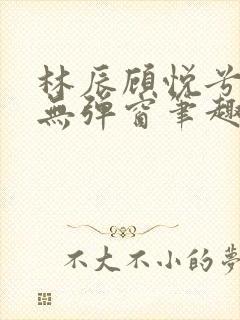 林辰顾悦兮
無弹窗笔趣
不大不小的夢